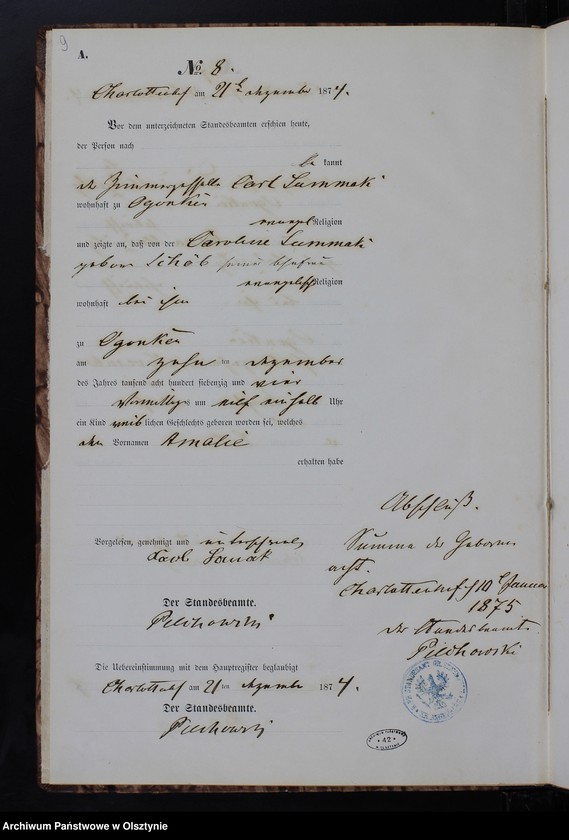 9
A.
No. 8.
Charlottenhof am 21t Dezember 1874.
Vor dem unterzeichneten Standesbeamten erschien heute,
der Person nach
be kannt
der Zimmergeselle Carl Summak
wohnhaft zu Ogonken
evangel Religion
und zeigte an, daß von der Caroline Summak
geborne Schöb seiner Ehefrau
evangelisch Religion
wohnhaft bei ihm
zu Ogonken
am zehn ten Dezember
des Jahres tausend acht hundert siebenzig und vier
Vormittags um eilf einhalb Uhr
ein Kind weib lichen Geschlechts geboren worden sei, welches
den Vornamen Amalie
erhalten habe
Vorgelesen, genehmigt und unterschrieben
Karl
Der Standesbeamte.
Pilchowski
Die Uebereinstimmung mit dem Hauptregister beglaubigt
Charlottenhof am 21 ten Dezember 1874.
Der Standesbeamte.
Pilchowski
Abschluß.
Summe der Geborenen
acht.
Charlottenhof, 10t Januar
1875
der Standesbeamte.
Pilchowski
42
Archiwum Państwowe w Olsztynie